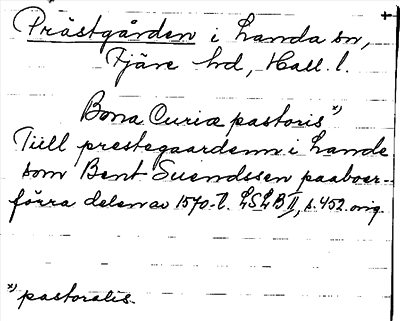 Prästgården i Landa sn,
Fjäre hd, Hall. l.
Bona Curiæ pastoris x)
Tiill prestegaardenn i Lande
som Bent Suendssen paaboer-
förra delen av 1570-t. LSLB II, s. 452 orig.
x) pastoralis.